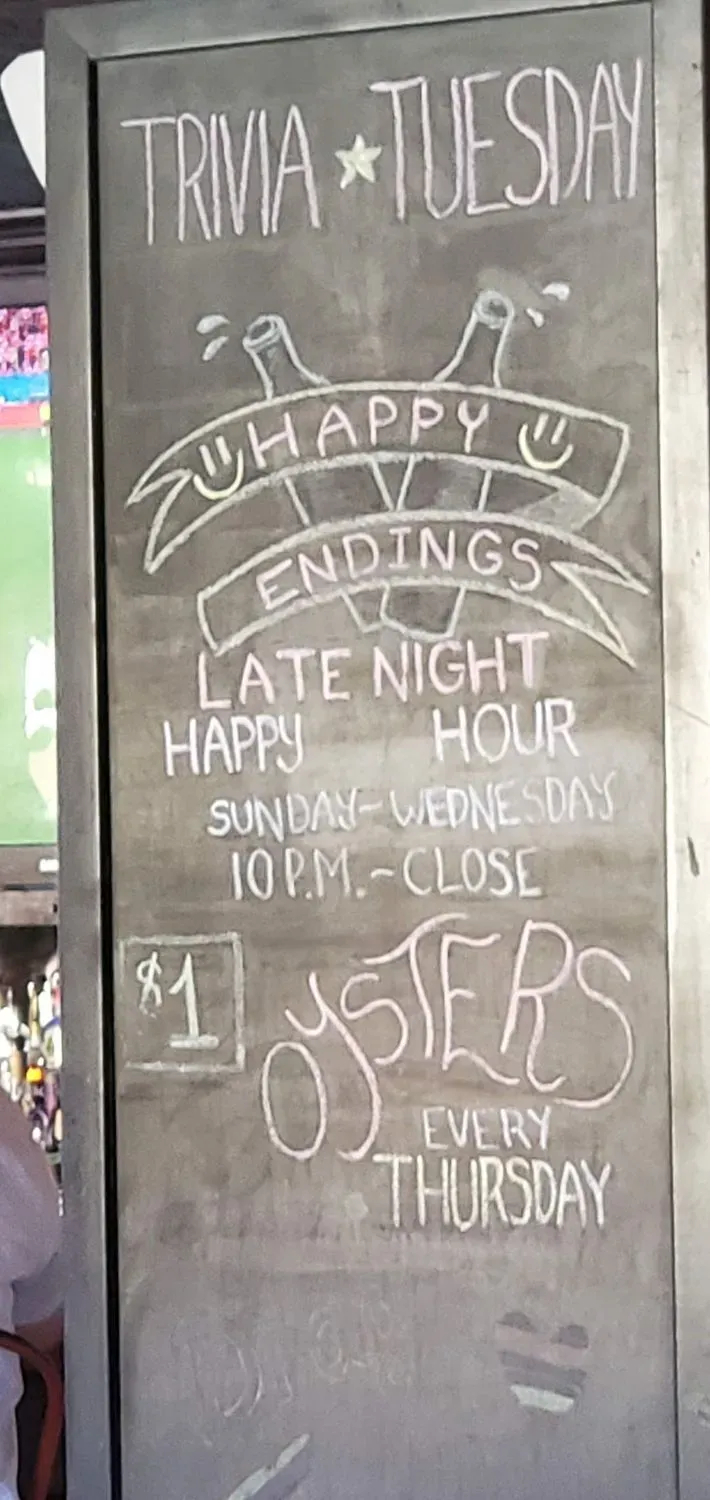 TRIVIA ★ TUESDAY
HAPPY
ENDINGS
LATE NIGHT
HAPPY HOUR
SUNDAY-WEDNESDAY
10 P.M.-CLOSE
$1
OYSTERS
EVERY
THURSDAY